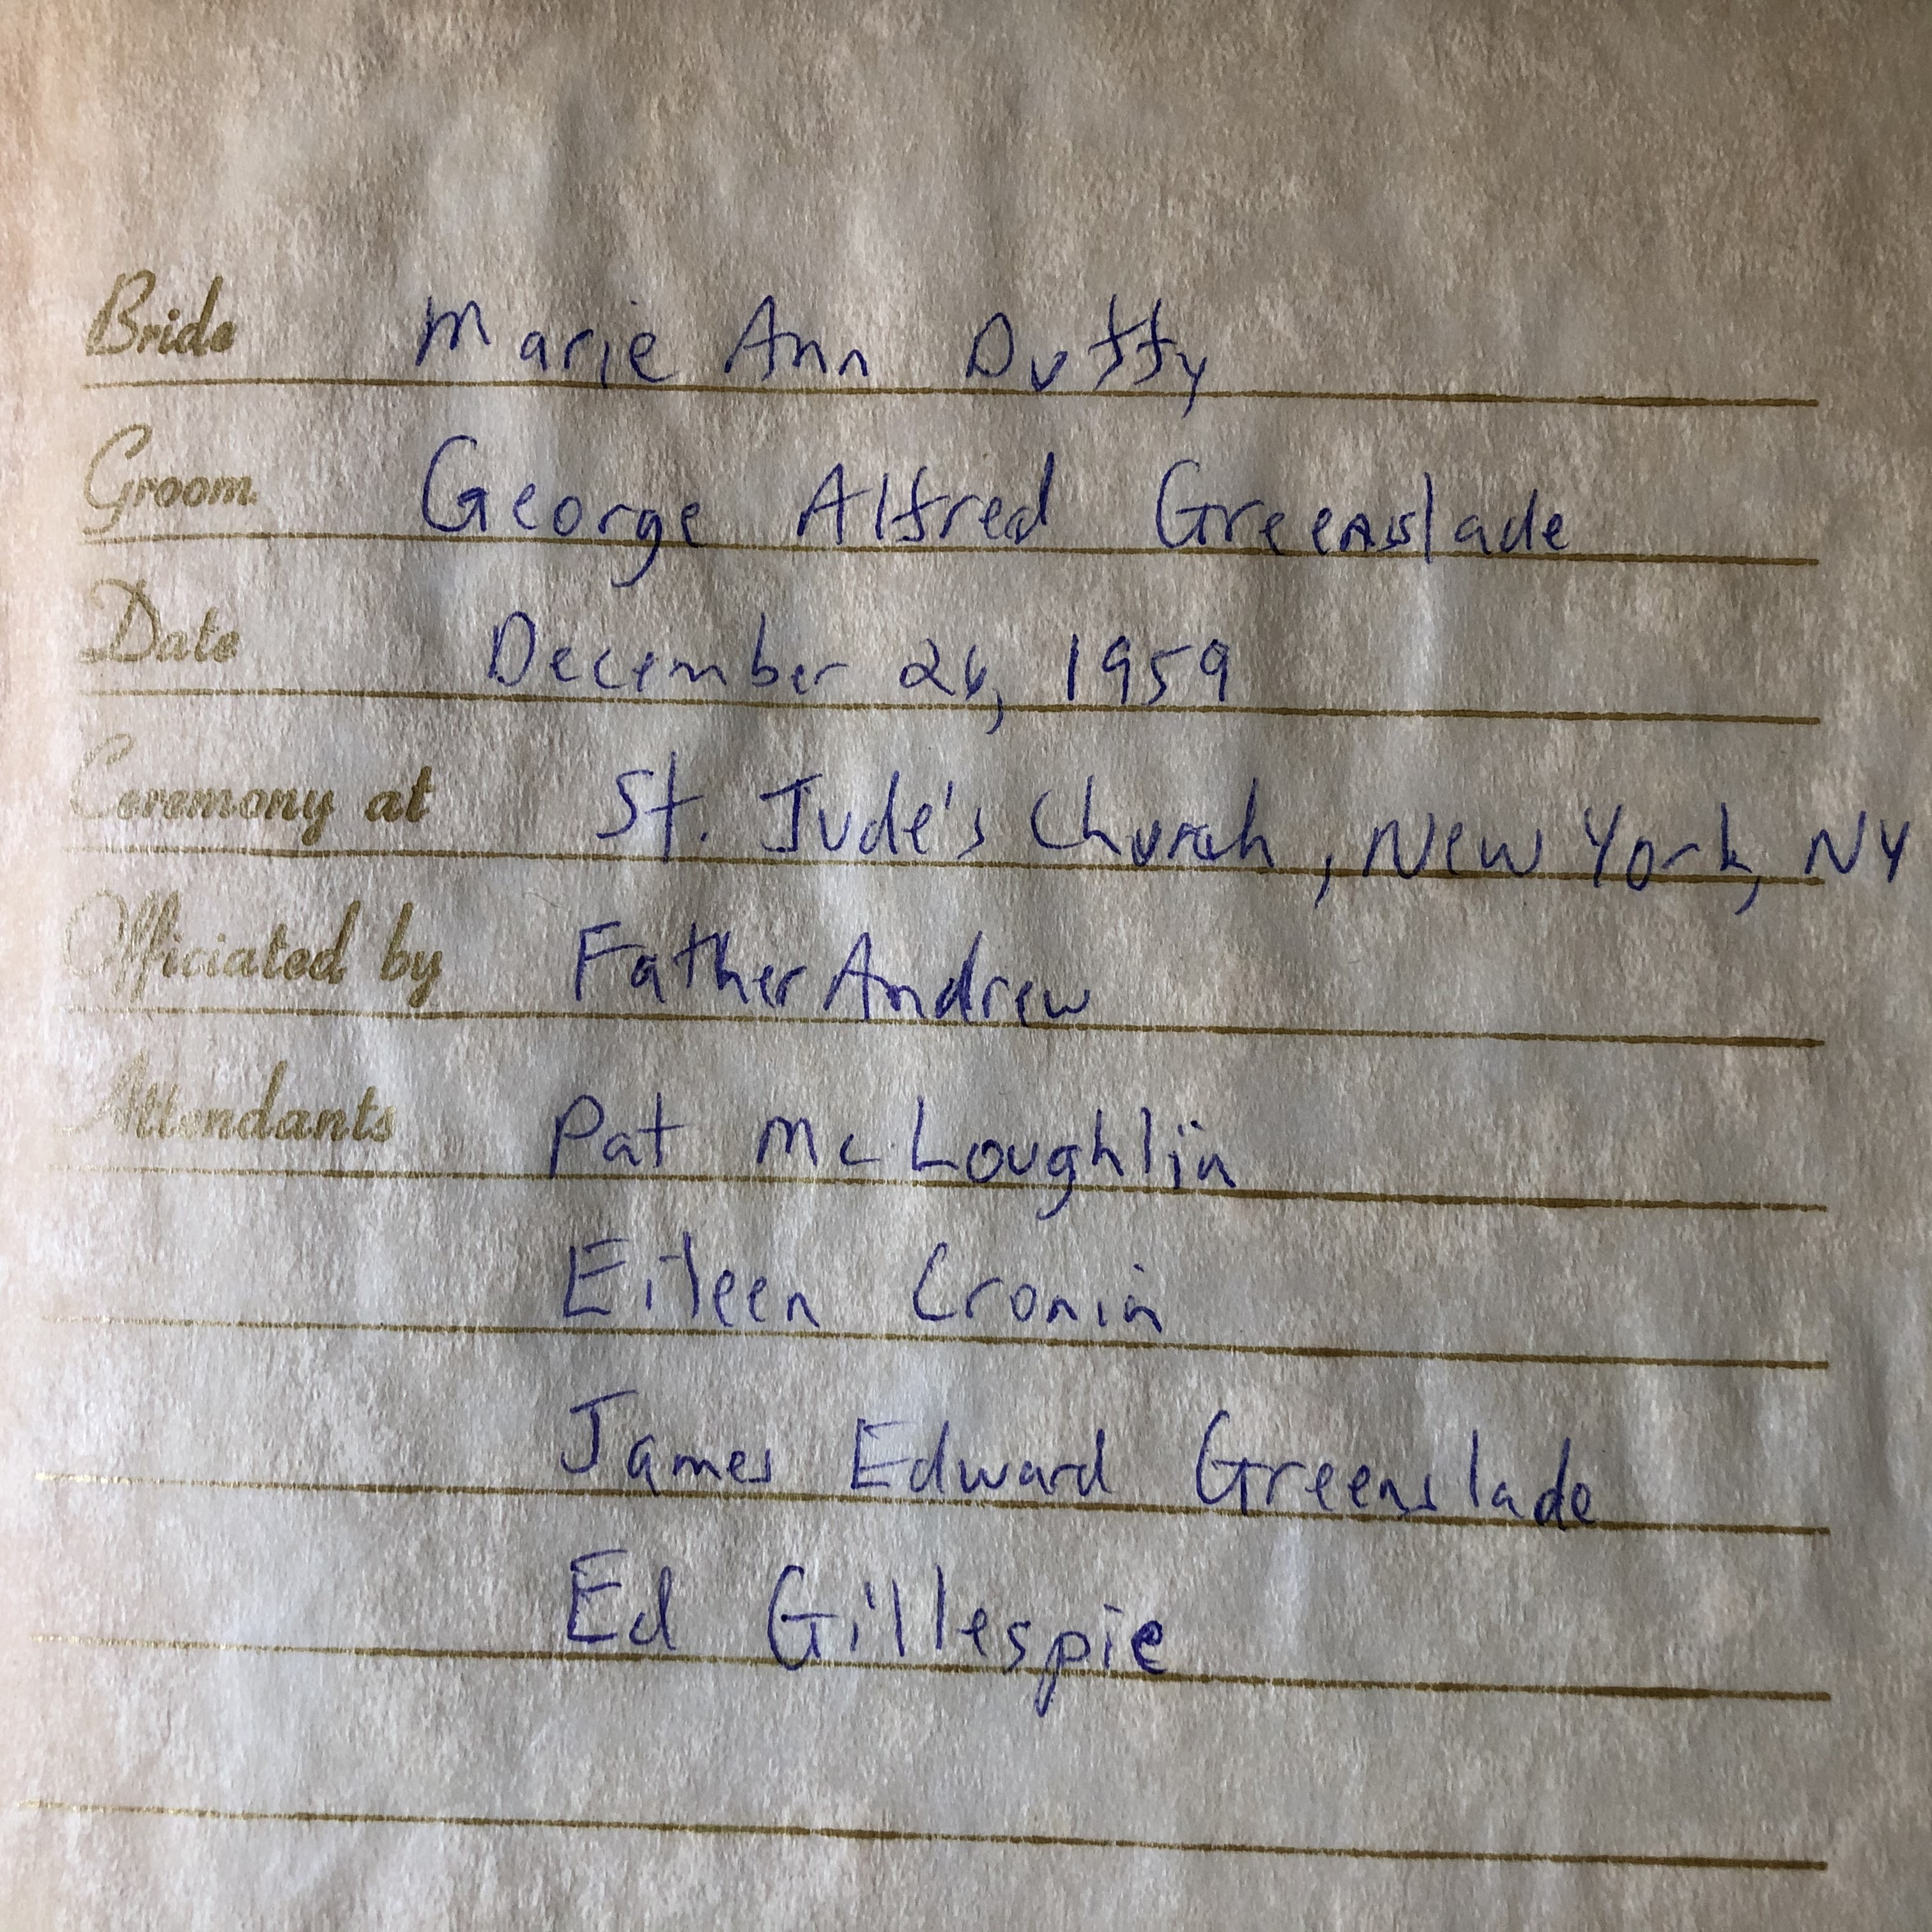 Bride Marie Ann Duffy
Groom George Alfred Greenslade
Date December 26, 1959
Ceremony at St. Jude's Church, New York, NY
Officiated by Father Andrew
Attendants Pat McLoughlin
Eileen Cronin
James Edward Greenslade
Ed Gillespie